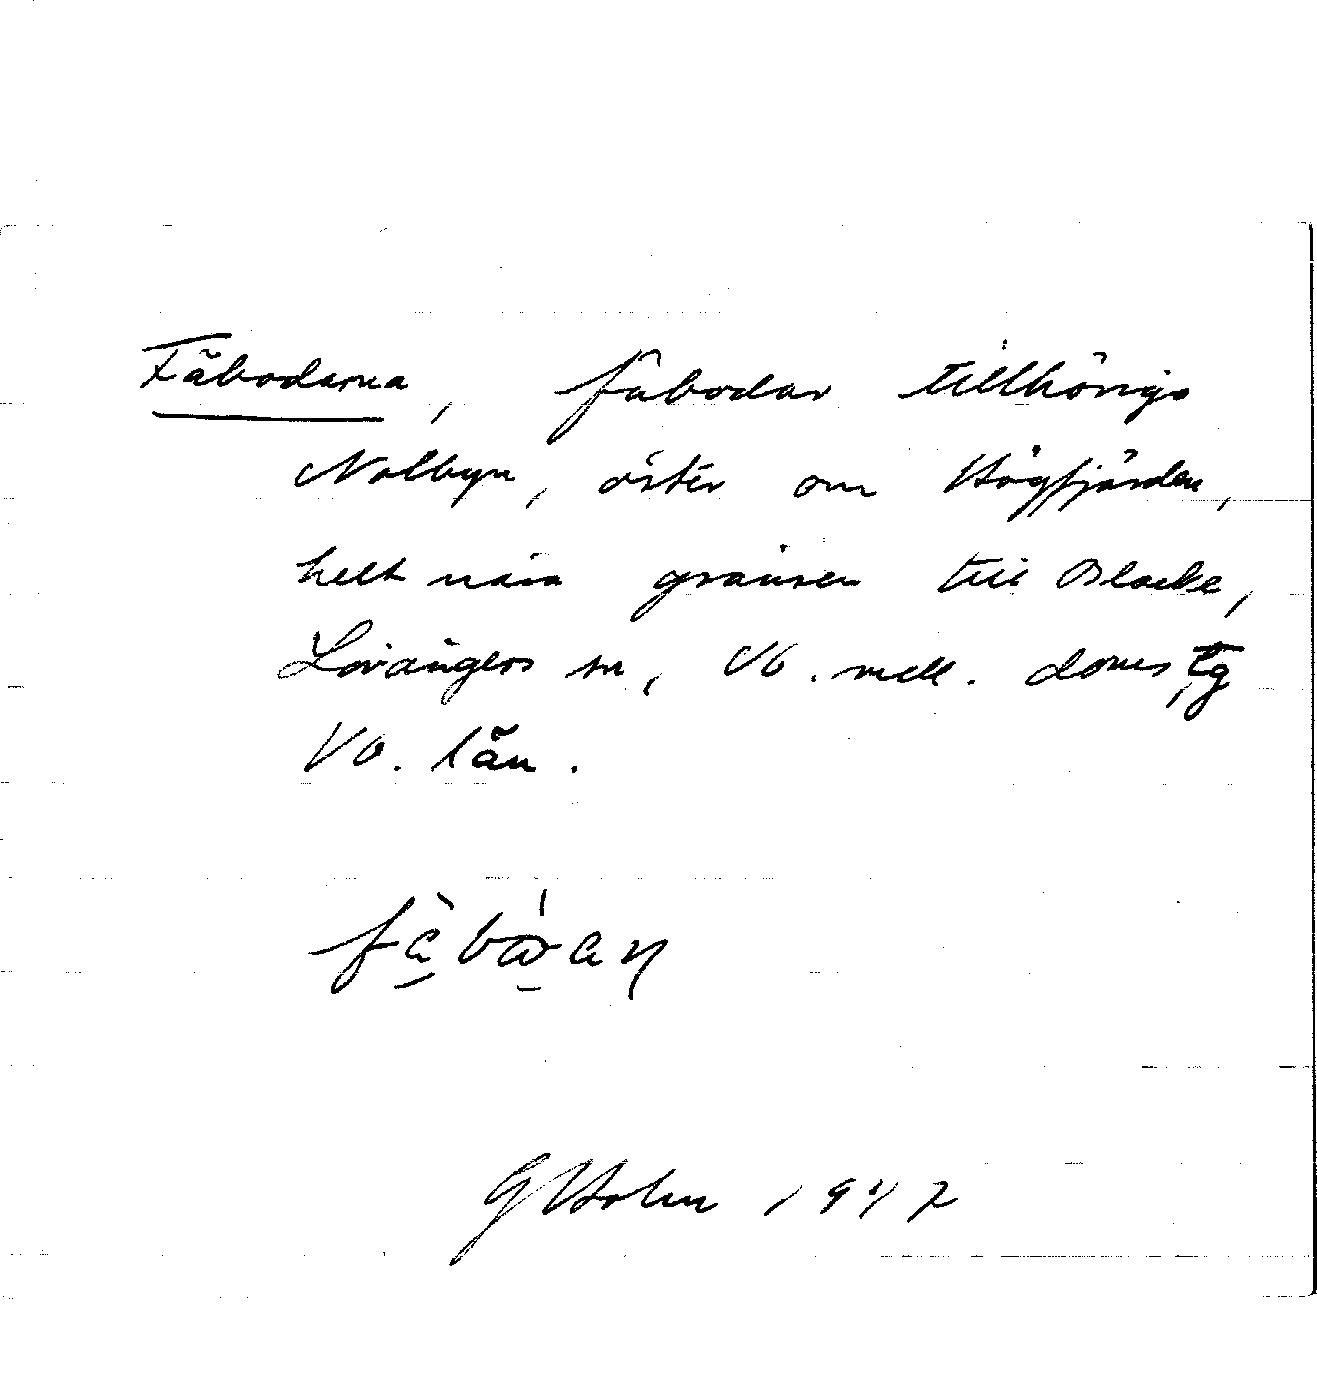 Fäbodarna, fäbodar tillhöriga
Nolbyn, öster om Högfjärden,
helt nära gränsen till Blacke,
Lövångers sn, Vb. mell. doms tg
Vb. län.
G Holm 1947